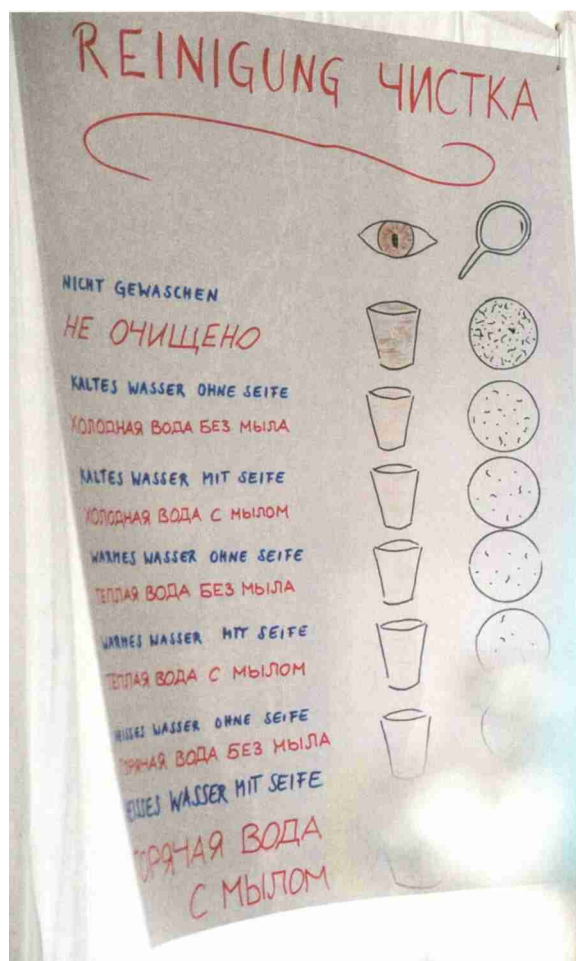 REINIGUNG ЧИСТКА
NICHT GEWASCHEN
НЕ ОЧИЩЕНО
KALTES WASSER OHNE SEIFE
ХОЛОДНАЯ ВОДА БЕЗ МЫЛА
KALTES WASSER MIT SEIFE
ХОЛОДНАЯ ВОДА С МЫЛОМ
WARMES WASSER OHNE SEIFE
ТЕПЛАЯ ВОДА БЕЗ МЫЛА
WARMES WASSER MIT SEIFE
ТЕПЛАЯ ВОДА С МЫЛОМ
HEISSES WASSER OHNE SEIFE
ГОРЯЧАЯ ВОДА БЕЗ МЫЛА
HEISSES WASSER MIT SEIFE
ГОРЯЧАЯ ВОДА
С МЫЛОМ